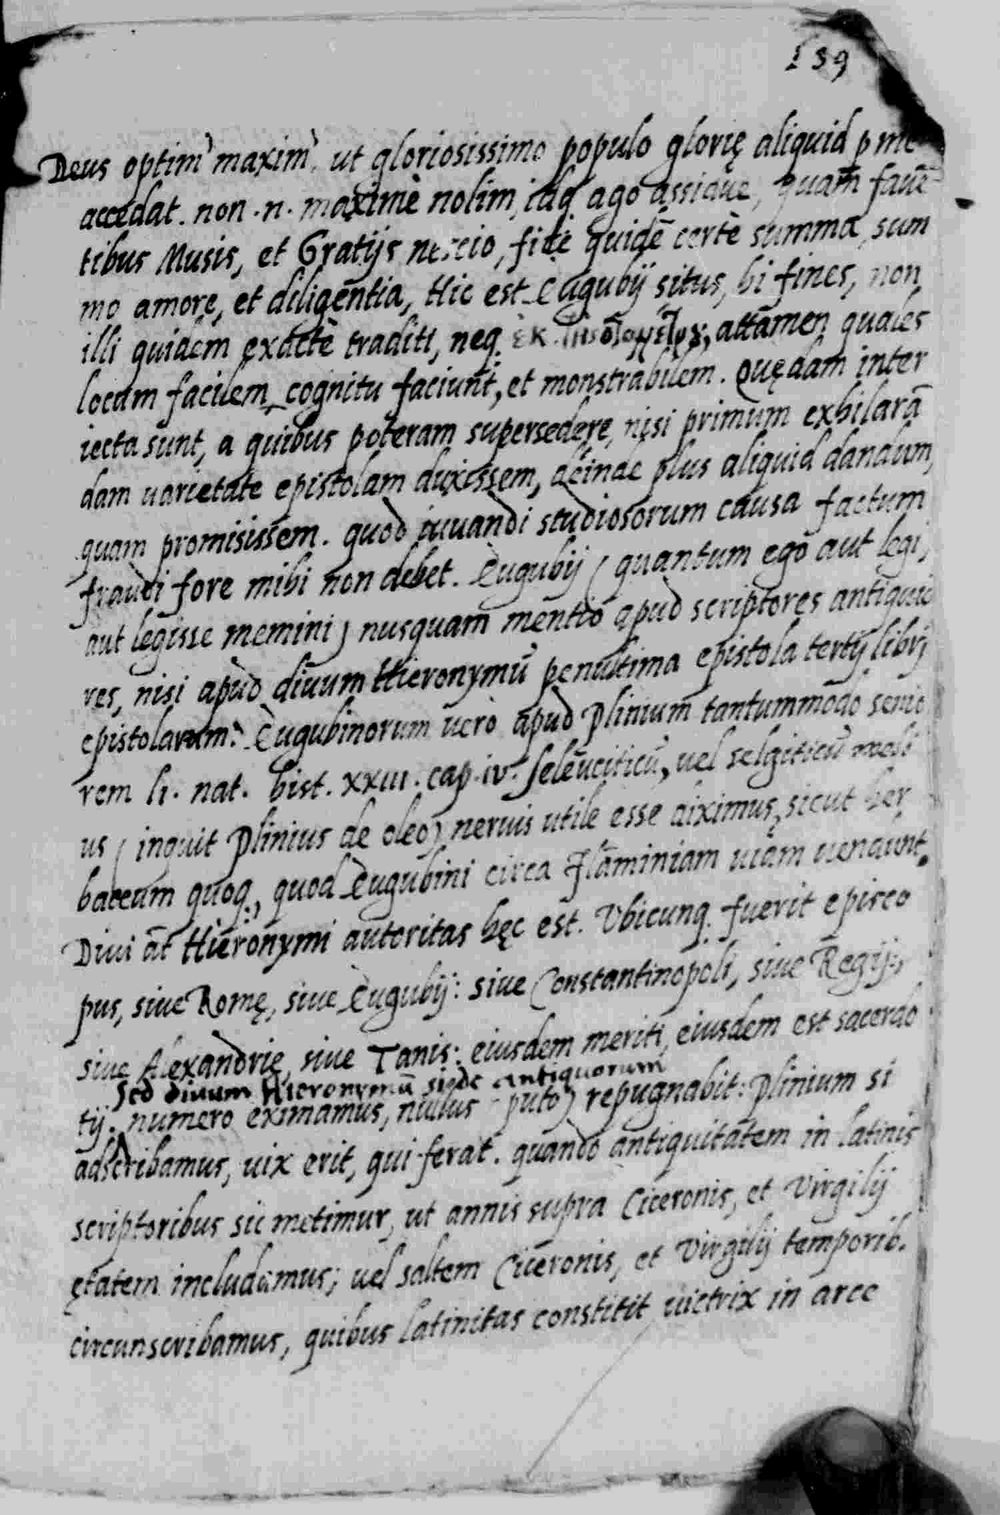 139
Deus optim' maxim', ut gloriosissimo populo glorię aliquid p me
accedat. non .n. maximè nolim, idq. ago assidue, quam fauē
tibus Musis, et Gratijs nescio, fide quidē certè summa, sum
mo amore, et diligentia, Hic est Eugubij situs, hi fines, non
illi quidem exactè traditi, neq. ἐκ attamen quales
locum facilem cognitu faciunt, et monstrabilem. Quędam inter
iecta sunt, a quibus poteram supersedere, nisi primum exhilarā
dam uarietate epistolam duxissem, deinde plus aliquid dandum,
quam promisissem. quod iuuandi studiosorum causa factum
fraudi fore mihi non debet. Eugubij ( quantum ego aut legi,
aut legisse memini ) nusquam mentio apud scriptores antiquio
res, nisi apud diuum Hieronymū penultima epistola tertij libri
epistolarum: Eugubinorum uerò apud Plinium tantummodo senio
rem li. nat. hist. XXIII. cap. iv. Seleuciticū, uel selgiticū meli
us ( inquit Plinius de oleo ) neruis utile esse diximus, sicut her
baceum quoq., quod Eugubini circa Flaminiam uiam uendunt.
Diui āt Hieronymi autoritas hęc est. Vbicunq. fuerit episco
pus, siue Romę, siue Eugubij: siue Constantinopoli, siue Regij:,
siue Alexandrię, siue Tanis: eiusdem meriti, eiusdem est sacerdo
Sed diuum Hieronymū si de antiquorum
tij. numero eximamus, nullus ( puto ) repugnabit: Plinium si
adscribamus, uix erit, qui ferat. quando antiquitatem in latinis
scriptoribus sic metimur, ut annis supra Ciceronis, et Virgilij
ętatem includamus; uel saltem Ciceronis, et Virgilij temporib.
circunscribamus, quibus latinitas constitit uictrix in arce